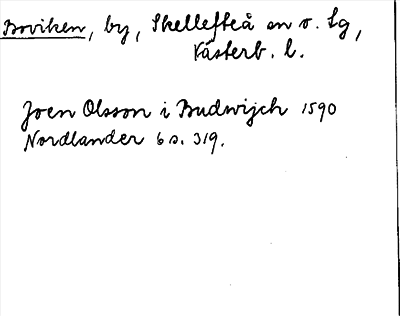 Boviken, by, Skellefteå sn o. Lg,
Västerb. l.
Joen Olsson i Budwijch 1590
Nordlander 6 s. 319.